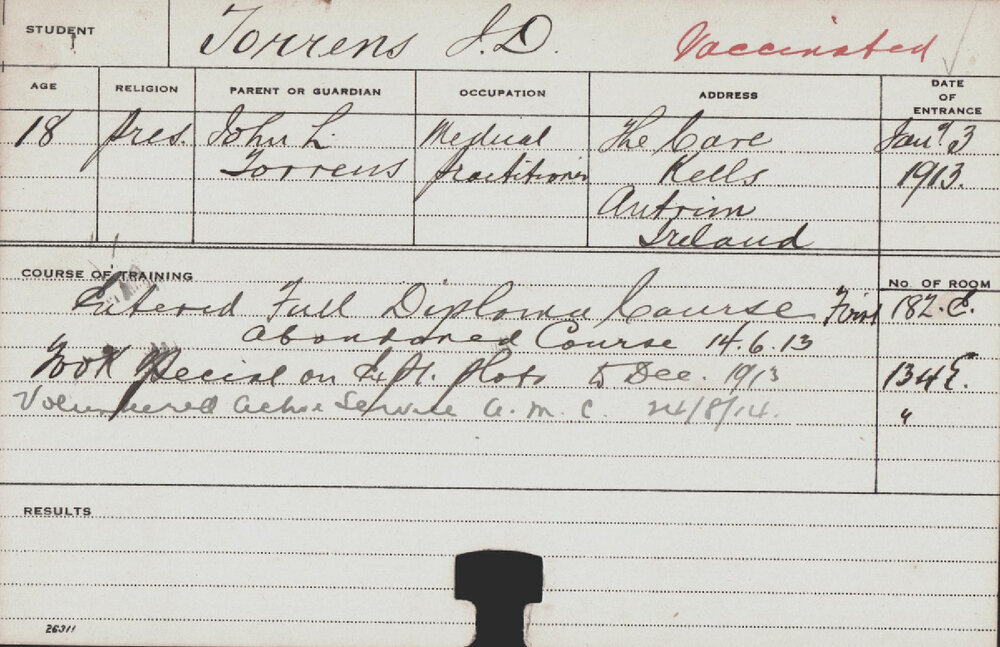 STUDENT Torrens J.D. Vaccinated
AGE RELIGION PARENT OR GUARDIAN OCCUPATION ADDRESS DATE OF ENTRANCE
18 Pres. John L. Medical The Cave Jany 3
Torrens Practitioner Kells 1913.
Antrim
Ireland
COURSE OF TRAINING No. OF ROOM
Entered Full Diploma Course First 182.E.
abandoned Course 14.6.13
Took Special on Expt. plots to Dec. 1913 134E.
Volunteered active Service A.M.C. 24/8/14. "
RESULTS
26311